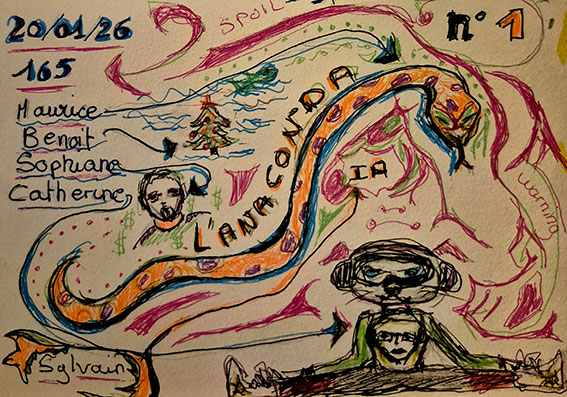 20/01/26
SPOIL
n° 1
165
Maurice
Benoit
Sophiane
Catherine
L'ANACONDA
IA
warning
$
$
$
$
DTS
Sylvain